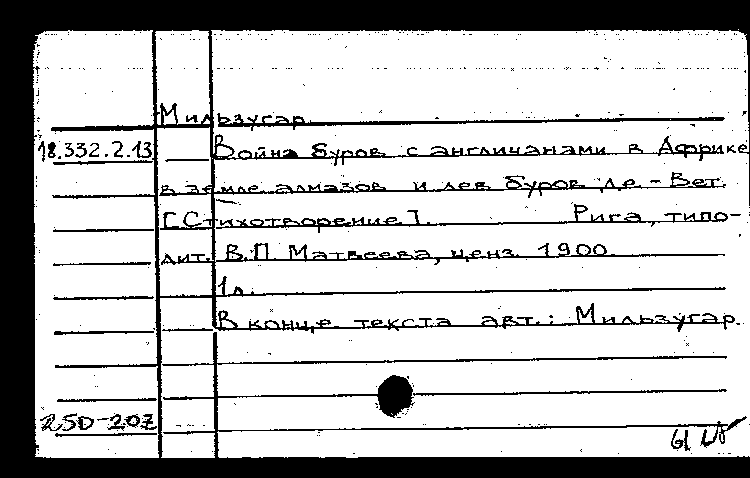 Мильзугар.
18.332.2.13 Война буров с англичанами в Африке
в земле алмазов и лев буров де-Вет.
[Стихотворение]. Рига, типо-
лит. В.П. Матвеева, ценз. 1900.
1л.
В конце текста авт.: Мильзугар.
250-207
61